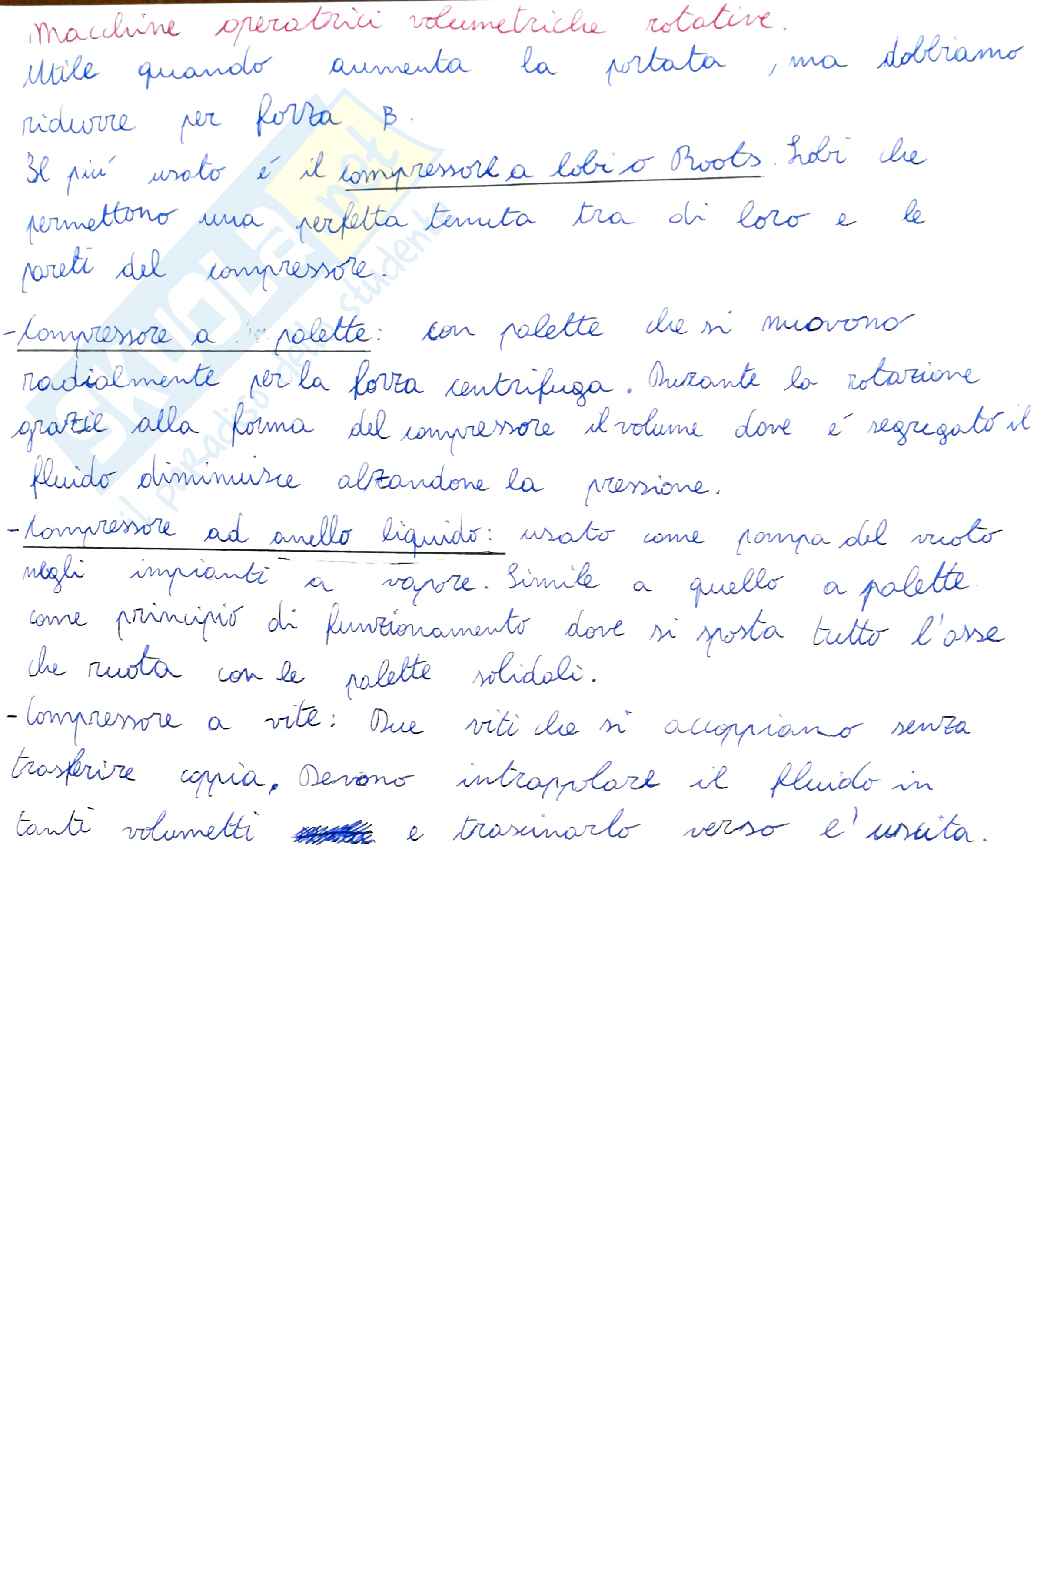 Macchine operatrici volumetriche rotative.
Utile quando aumenta la portata, ma dobbiamo
ridurre per forza B.
Il più usato é il compressore a lobi o Roots. Lobi che
permettono una perfetta tenuta tra di loro e le
pareti del compressore.
- Compressore a palette: con palette che si muovono
radialmente per la forza centrifuga. Durante la rotazione
grazie alla forma del compressore il volume dove é segregato il
fluido diminuisce alzandone la pressione.
- Compressore ad anello liquido: usato come pompa del vuoto
negli impianti a vapore. Simile a quello a palette
come principio di funzionamento dove si sposta tutto l'asse
che ruota con le palette solidali.
- Compressore a vite: Due viti che si accoppiano senza
trasferire coppia. Devono intrappolare il fluido in
tanti volumetti e trascinarlo verso l'uscita.
SKUOLA.net
il paradiso dello studente